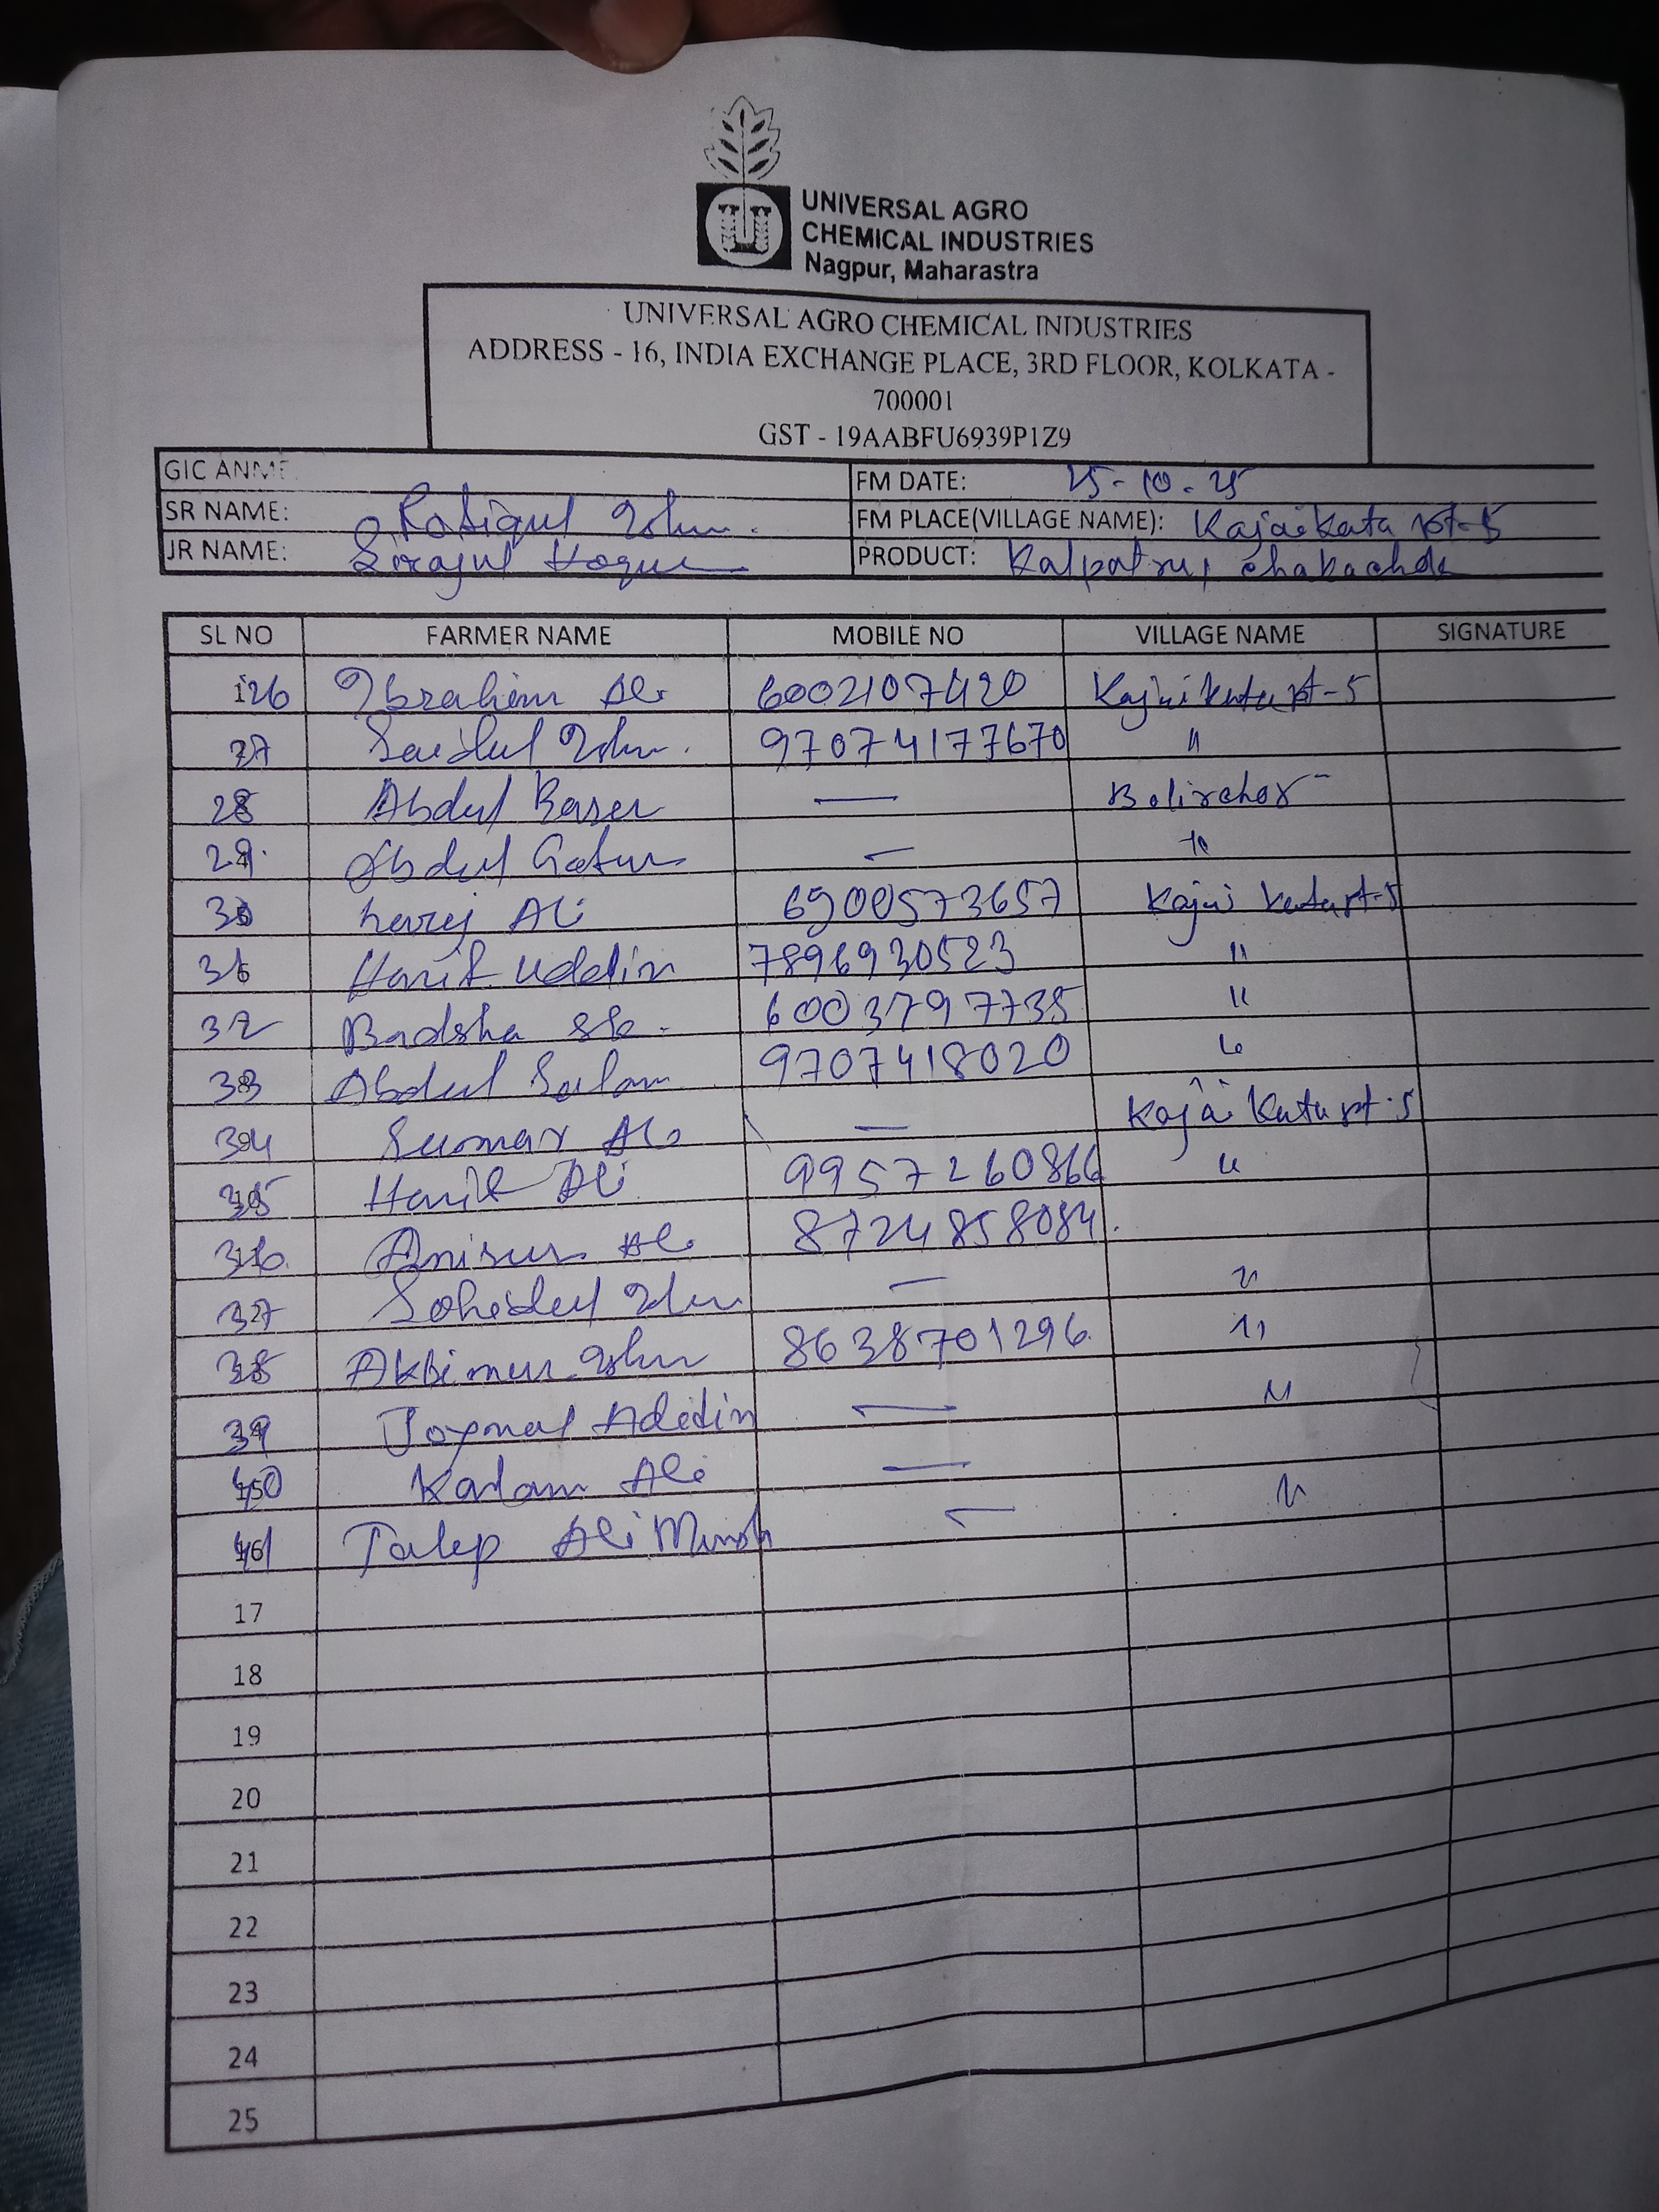 UNIVERSAL AGRO
CHEMICAL INDUSTRIES
Nagpur, Maharastra
UNIVERSAL AGRO CHEMICAL INDUSTRIES
ADDRESS - 16, INDIA EXCHANGE PLACE, 3RD FLOOR, KOLKATA -
700001
GST - 19AABFU6939P1Z9
GIC ANME FM DATE: 25-10-25
SR NAME: Rofiqul Islam. FM PLACE(VILLAGE NAME): Kajaikata pt-5
JR NAME: Sirajul Hoque PRODUCT: Kalpatru, Chakachak
SL NO FARMER NAME MOBILE NO VILLAGE NAME SIGNATURE
26 Ibrahim Ali 6002107420 Kajaikata pt-5
27 Saidul Islam. 97074177670 "
28 Abdul Baser — Balirchor
29 Abdul Gofur — "
30 Ali 6900573657 Kajai kata pt-5
31 Hanif Uddin 7896930523 "
32 Badsha Sk. 6003797735 "
33 Abdul Salam 9707418020 "
34 Sumar Ali — Kajai Kata pt-5
35 Hanif Ali 9957260866 "
36 Anisur Ali 8724858084.
37 Sohidul Islam — "
38 Islam 8638701296. "
39 Joynal Abedin — "
40 Kalam Ali —
41 Talep Ali — "
17
18
19
20
21
22
23
24
25